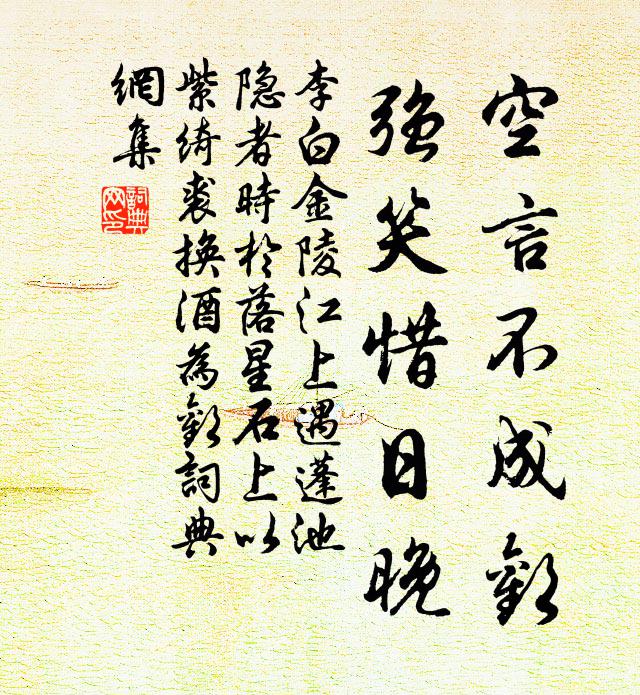 空言不成歡
強笑惜日晚
李白金陵江上遇蓬池
隐者時於落星石上以
紫綺裘換酒為歡詞典
網集
詞典
网印